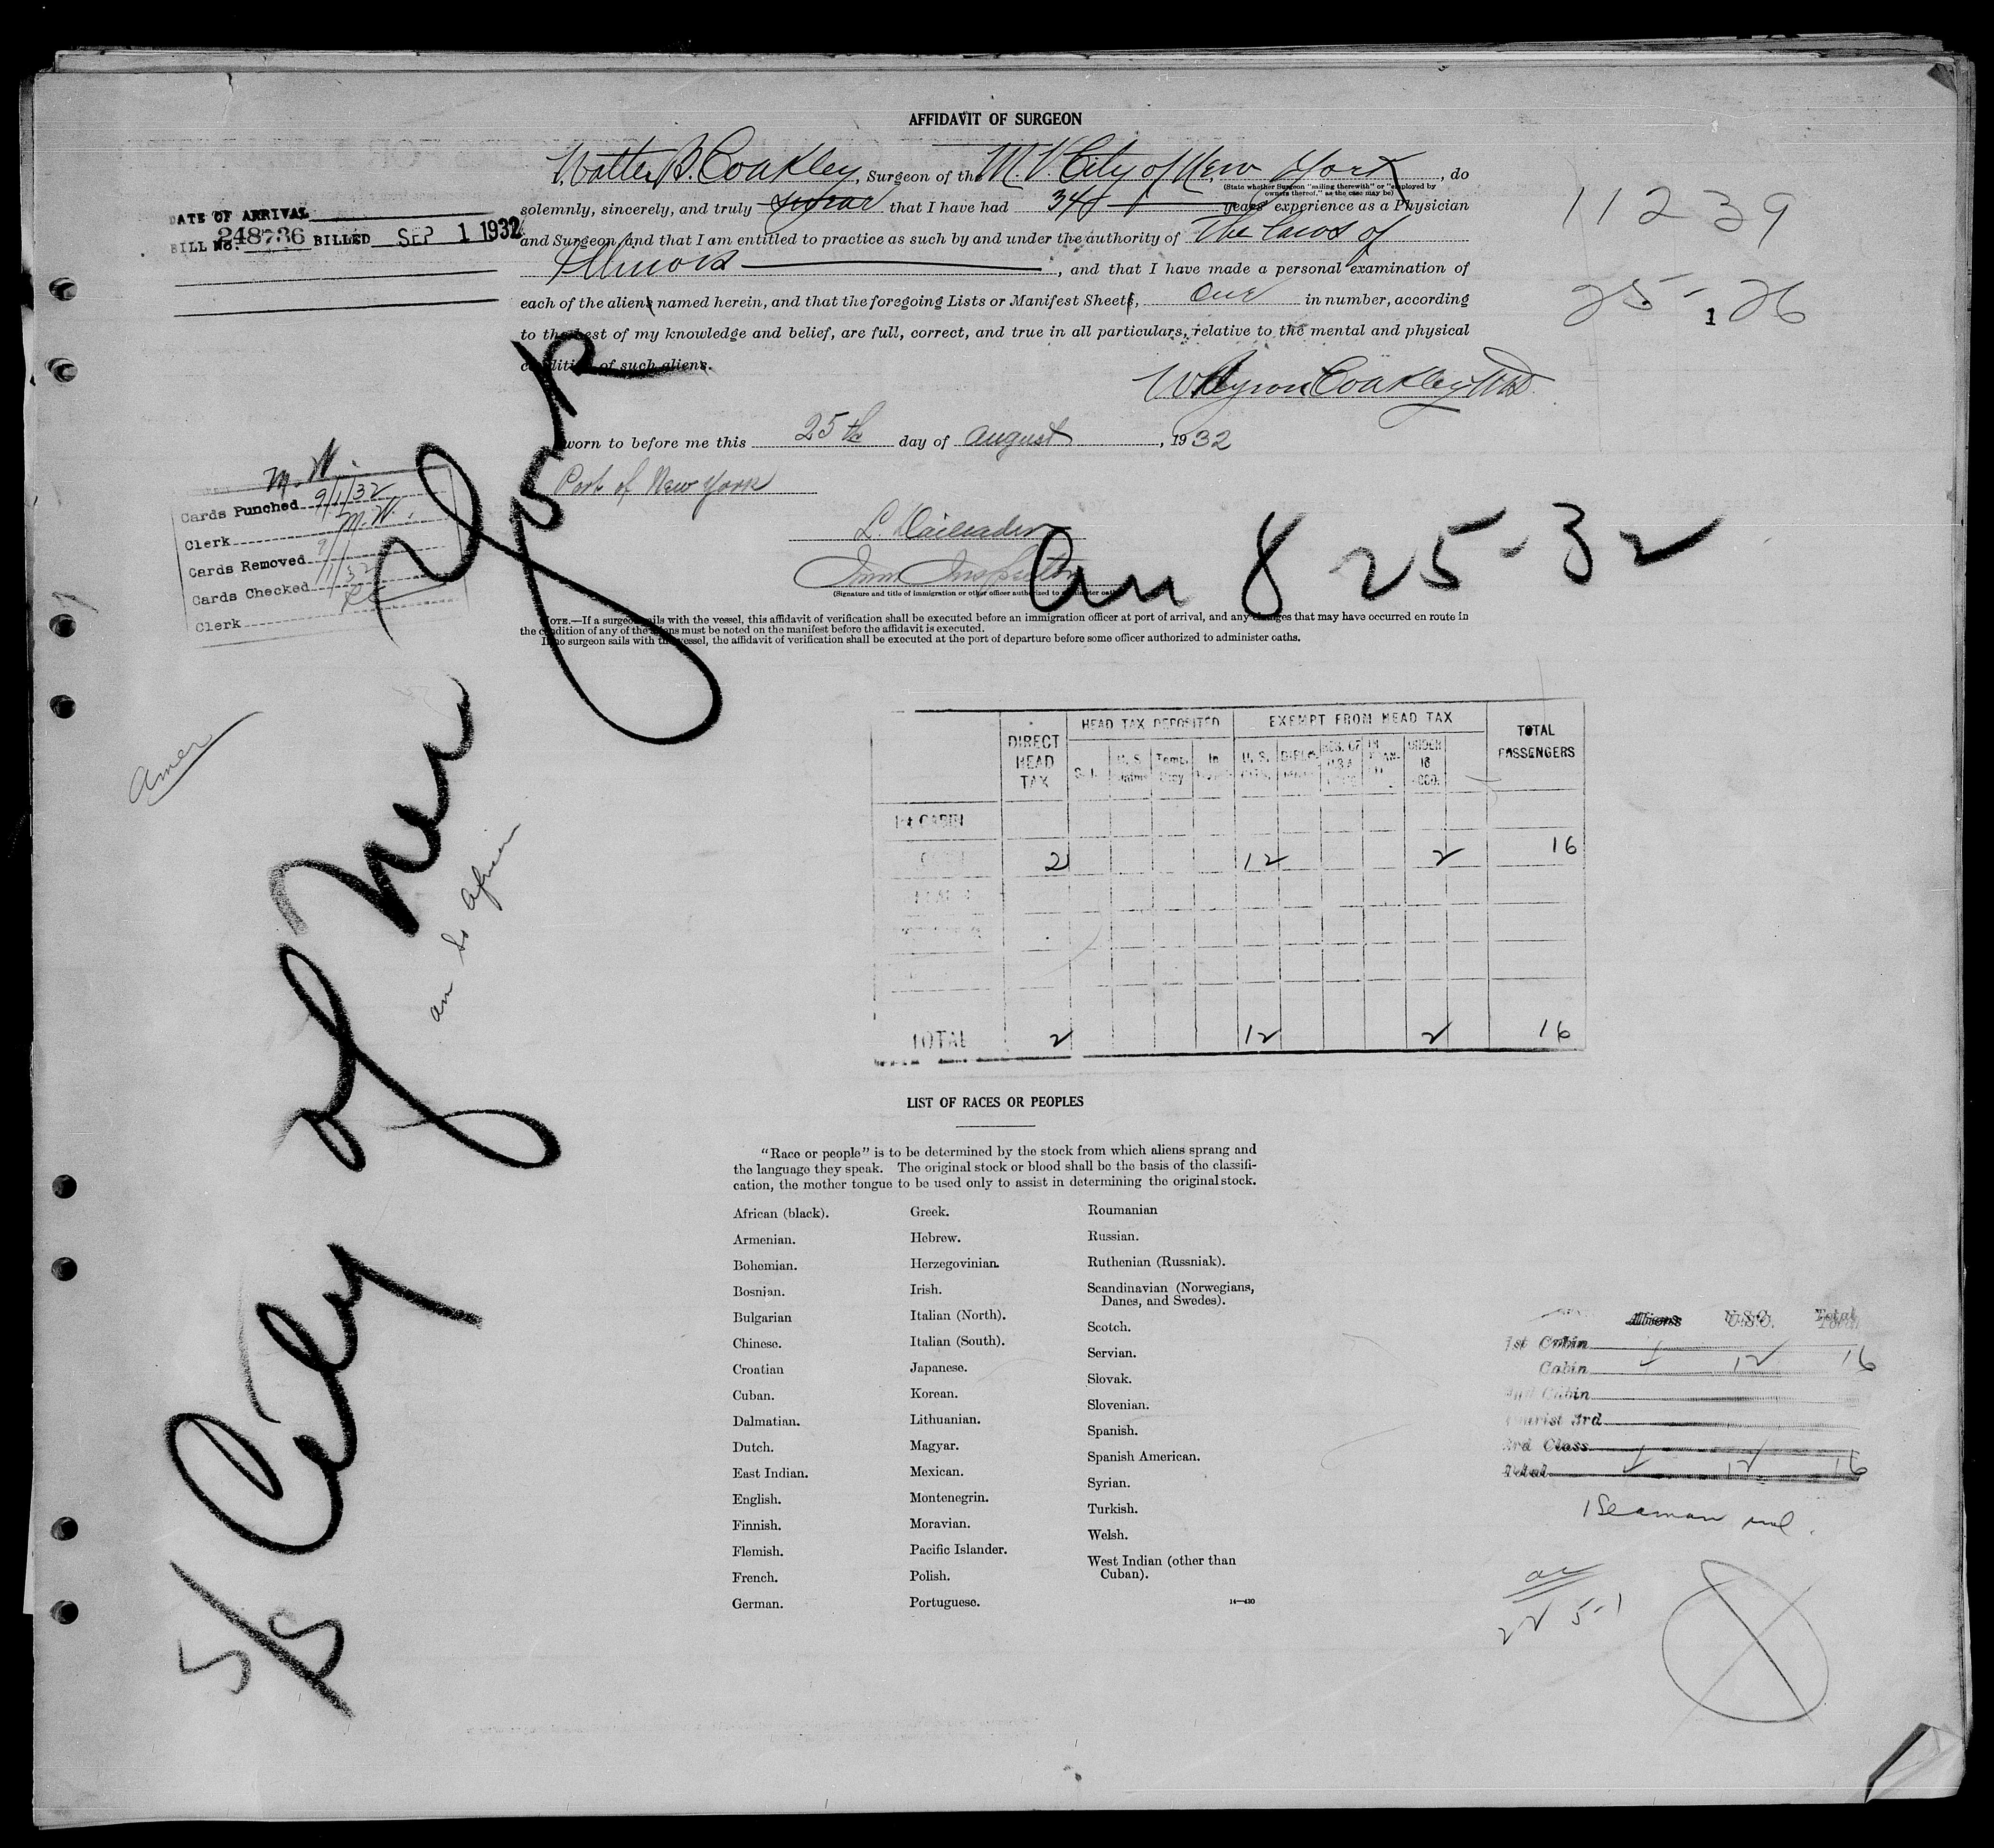 AFFIDAVIT OF SURGEON
Walter B. Coakley, Surgeon of the M. V. City of New York, do
(State whether Surgeon "sailing therewith" or "employed by
owners thereof," as the case may be)
solemnly, sincerely, and truly swear that I have had 34 years' experience as a Physician
and Surgeon and that I am entitled to practice as such by and under the authority of The laws of
Illinois, and that I have made a personal examination of
each of the aliens named herein, and that the foregoing Lists or Manifest Sheets, One in number, according
to the best of my knowledge and belief, are full, correct, and true in all particulars, relative to the mental and physical
condition of such aliens.
W Byron Coakley M.D.
Sworn to before me this 25th day of August, 1932
Port of New York
Imm Inspector
(Signature and title of immigration or other officer authorized to administer oaths)
NOTE.—If a surgeon sails with the vessel, this affidavit of verification shall be executed before an immigration officer at port of arrival, and any changes that may have occurred en route in
the condition of any of the aliens must be noted on the manifest before the affidavit is executed.
If no surgeon sails with the vessel, the affidavit of verification shall be executed at the port of departure before some officer authorized to administer oaths.
DATE OF ARRIVAL
BILL No. 248736 BILLED SEP 1 1932
11239
25-26
1
M. W.
Cards Punched 9/1/32
Clerk M. W.
Cards Removed
Cards Checked 9/1/32
Clerk
S/S City of New York
Arr 8 25-32
Amer
am So African
DIRECT HEAD TAX
HEAD TAX DEPOSITED
EXEMPT FROM HEAD TAX
TOTAL PASSENGERS
U.S. Temp. In U.S. UNDER 16
1st CABIN
2 12 2 16
TOTAL 2 12 2 16
LIST OF RACES OR PEOPLES
"Race or people" is to be determined by the stock from which aliens sprang and
the language they speak. The original stock or blood shall be the basis of the classifi-
cation, the mother tongue to be used only to assist in determining the original stock.
African (black).
Armenian.
Bohemian.
Bosnian.
Bulgarian
Chinese.
Croatian
Cuban.
Dalmatian.
Dutch.
East Indian.
English.
Finnish.
Flemish.
French.
German.
Greek.
Hebrew.
Herzegovinian.
Irish.
Italian (North).
Italian (South).
Japanese.
Korean.
Lithuanian.
Magyar.
Mexican.
Montenegrin.
Moravian.
Pacific Islander.
Polish.
Portuguese.
Roumanian
Russian.
Ruthenian (Russniak).
Scandinavian (Norwegians,
Danes, and Swedes).
Scotch.
Servian.
Slovak.
Slovenian.
Spanish.
Spanish American.
Syrian.
Turkish.
Welsh.
West Indian (other than
Cuban).
14—430
Aliens U.S.C. Total
1st Cabin
Cabin 4 12 16
2nd Cabin
Tourist 3rd
3rd Class
Total 4 12 16
1 Seaman incl.
22 5-1